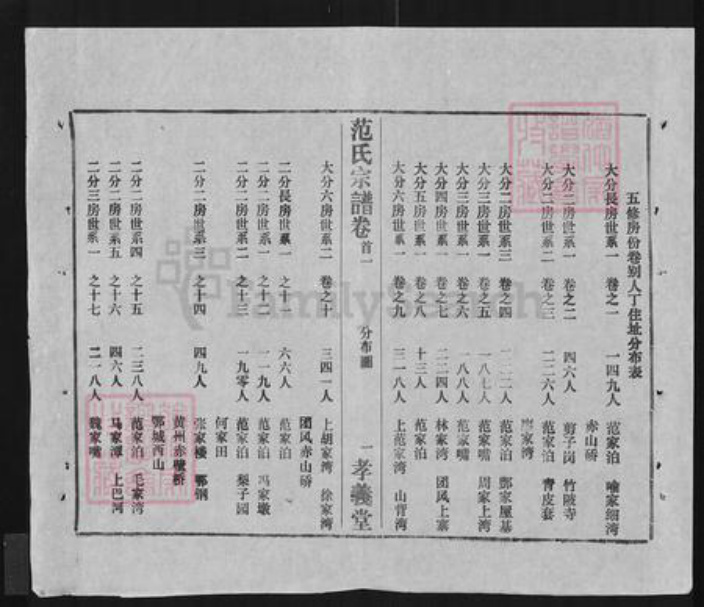 五修房份卷别人丁住址分布表
大分長房世系一 卷之一 一四九人 范家泊 喻家细湾
赤山硚
大分二房世系一 卷之二 四六人 剪子岗 竹陂寺
大分二房世系二 卷之三 二二六人 范家泊 青皮套
家湾
大分二房世系三 卷之四 二二人 范家泊 鄧家屋基
大分三房世系一 卷之五 一八七人 范家嘴 周家上湾
大分三房世系一 卷之六 一八八人 范家嘴
大分四房世系一 卷之七 二二四人 林家湾 团风上寨
大分五房世系一 卷之八 十三人 范家泊
大分六房世系一 卷之九 三一八人 上范家湾 山背湾
范氏宗譜卷首一 分布圖 一 孝義堂
大分六房世系二 卷之十 三四一人 上胡家湾 徐家湾
团风赤山硚
二分長房世系一 之十一 六六人 范家泊
二分二房世系一 之十二 一一九人 范家泊 冯家墩
二分二房世系二 之十三 一九零人 范家泊 梨子园
何家田
二分二房世系三 之十四 四九人 张家楼 鄂钢
黄州赤壁桥
鄂城西山
二分二房世系四 之十五 二三八人 范家泊 毛家湾
二分二房世系五 之十六 四六人 马家潭 上巴河
二分三房世系一 之十七 二一八人 魏家嘴
FamilySearch